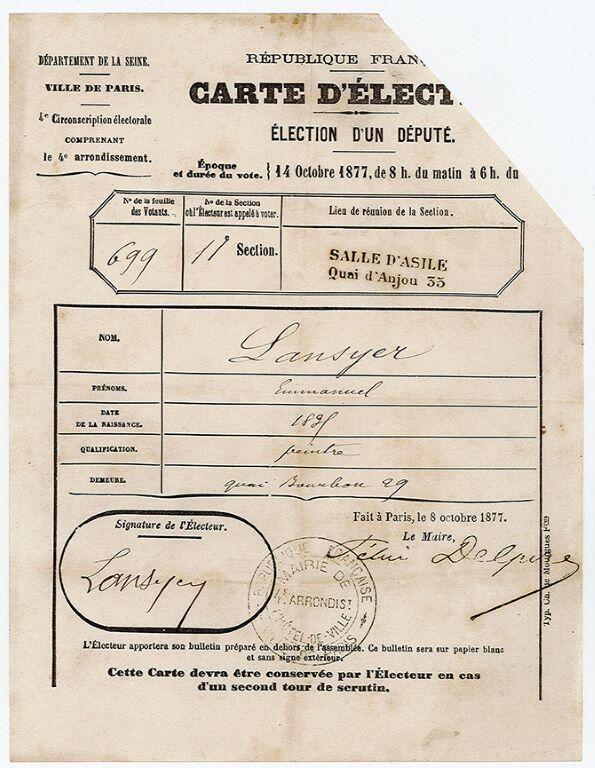 DÉPARTEMENT DE LA SEINE.
VILLE DE PARIS.
4e Circonscription électorale
COMPRENANT
le 4e arrondissement.
RÉPUBLIQUE FRAN
CARTE D'ÉLECT
ÉLECTION D'UN DÉPUTÉ.
Époque et durée du vote. } 14 Octobre 1877, de 8 h. du matin à 6 h. du
No de la feuille des Votants.
699
No de la Section où l'Électeur est appelé à voter.
11e Section.
Lieu de réunion de la Section.
SALLE D'ASILE
Quai d'Anjou 33
NOM. Lansyer
PRÉNOMS. Emmanuel
DATE DE LA NAISSANCE. 1835
QUALIFICATION. peintre
DEMEURE. quai Bourbon 29
Signature de l'Électeur.
Lansyer
Fait à Paris, le 8 octobre 1877.
Le Maire,
RÉPUBLIQUE FRANÇAISE
MAIRIE DU
4e ARRONDISt
HÔTEL-DE-VILLE
PARIS
Typ. Ch. de Mourgues Fres
L'Électeur apportera son bulletin préparé en dehors de l'assemblée. Ce bulletin sera sur papier blanc
et sans signe extérieur.
Cette Carte devra être conservée par l'Électeur en cas
d'un second tour de scrutin.